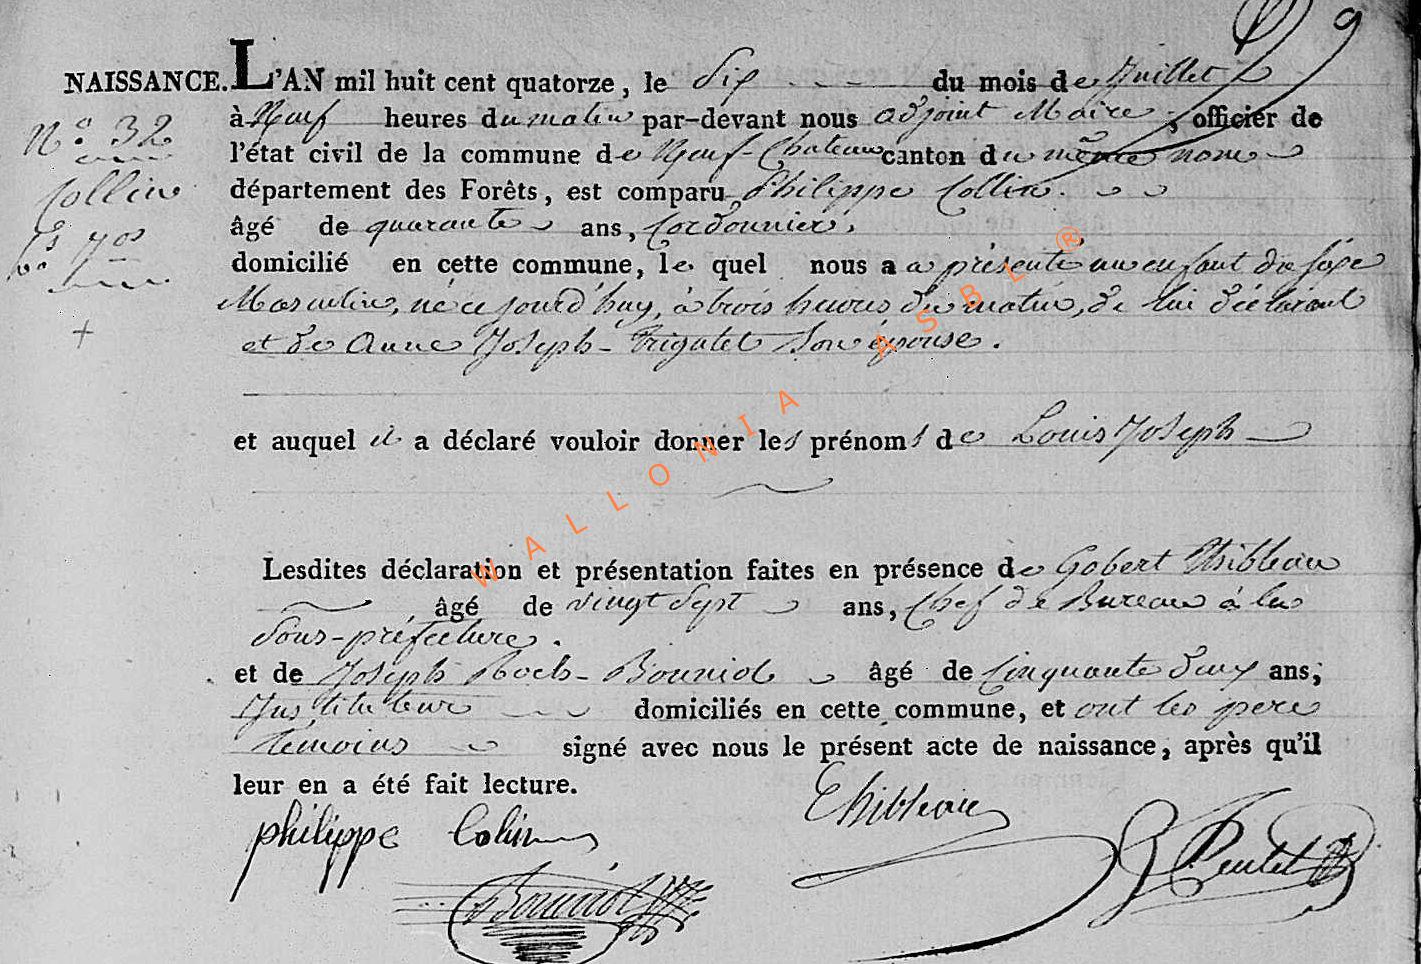 9
NAISSANCE. L'AN mil huit cent quatorze, le Six du mois de Juillet
N.° 32 à Neuf heures du matin par-devant nous adjoint Maire, officier de
l'état civil de la commune de Neuf-Chateau canton du même nom
Collin département des Forêts, est comparu Philippe Collin
âgé de quarante ans, Cordonnier,
domicilié en cette commune, le quel nous a a présenté un enfant du sexe
Masculin, né ce jourd'huy, à trois heures du matin, de lui déclarant
et de Anne Joseph Trigalet son épouse.
et auquel il a déclaré vouloir donner les prénoms de Louis Joseph
Lesdites déclaration et présentation faites en présence de Gobert Thibleau
âgé de vingt Sept ans, Chef de Bureau à la
Sous-préfecture.
et de Joseph Roch-Bouniol âgé de Cinquante deux ans;
Instituteur domiciliés en cette commune, et ont les pere
temoins signé avec nous le présent acte de naissance, après qu'il
leur en a été fait lecture.
philippe Colin Thibleau
Bouniol
WALLONIA ASBL ®